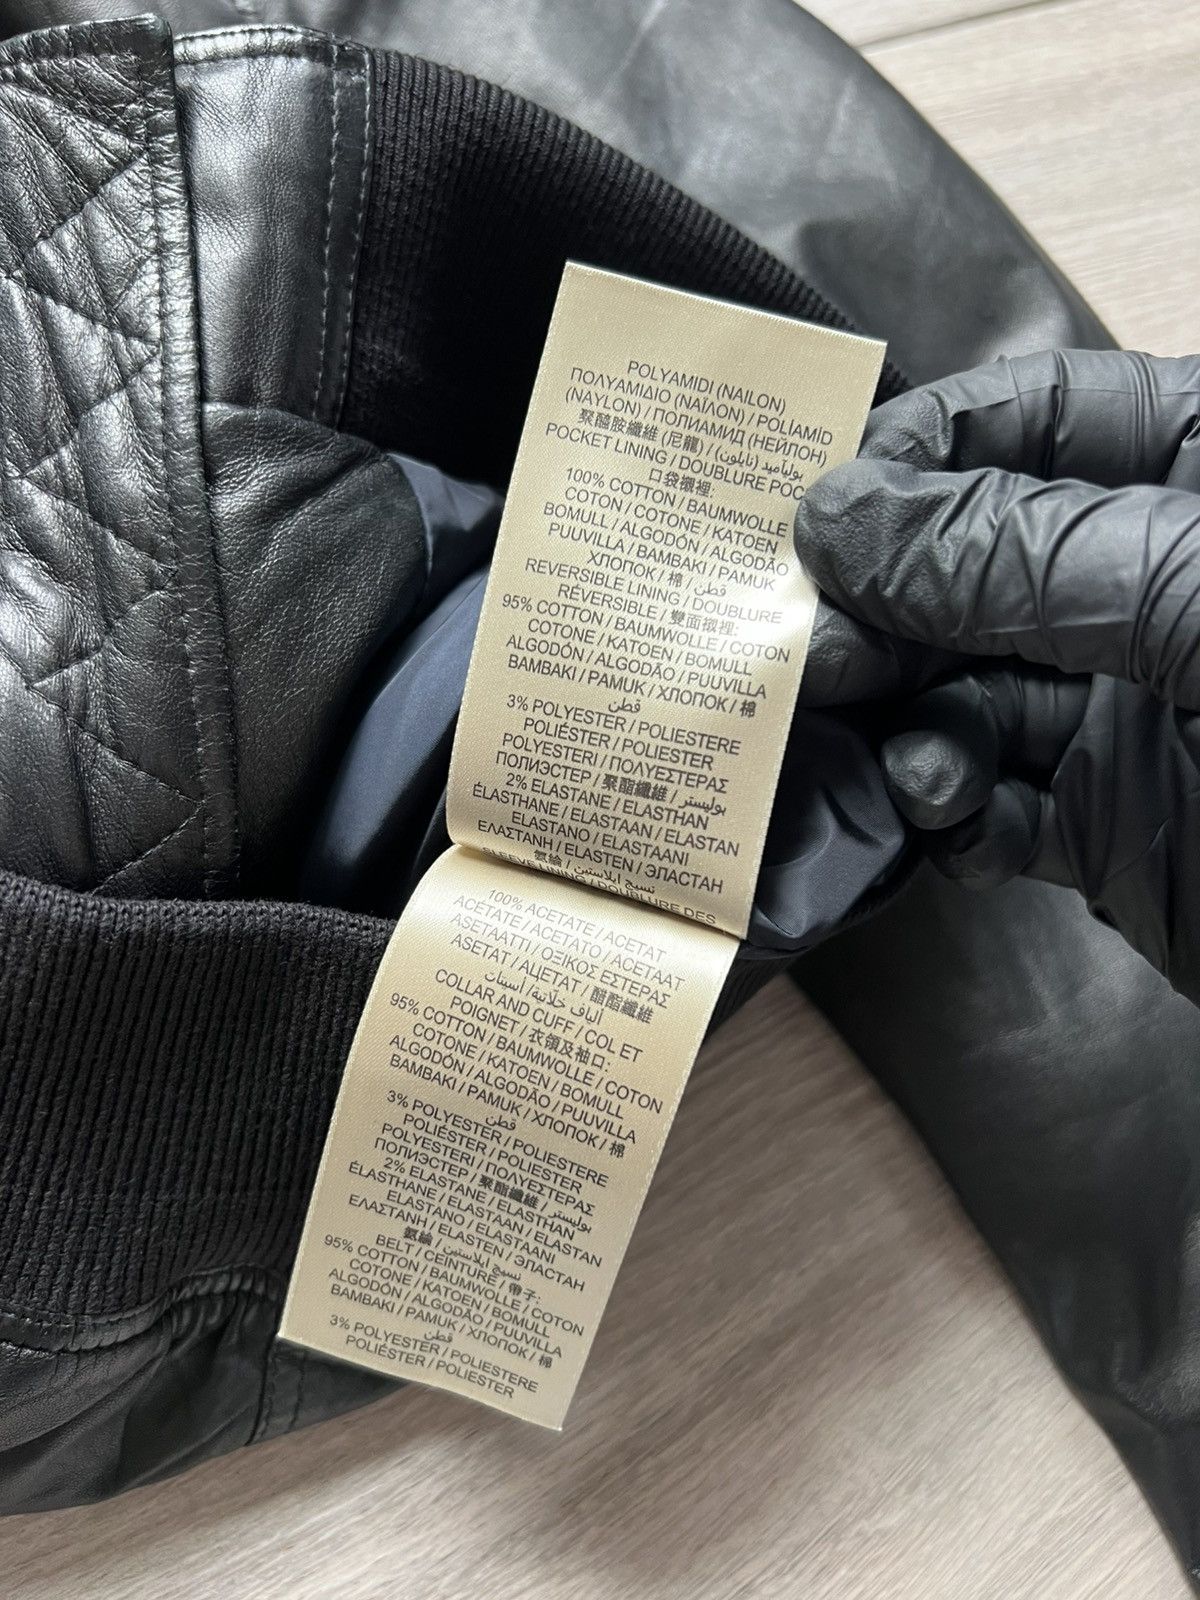 POLYAMIDI (NAILON)
ΠΟΛΥΑΜΙΔΙΟ (ΝΑΪΛΟΝ) / POLÍAMİD
(NAYLON) / ПОЛИАМИД (НЕЙЛОН)
聚醯胺纖維 (尼龍) / (نايلون) بولياميد
POCKET LINING / DOUBLURE POC
口袋襯裡:
100% COTTON / BAUMWOLLE
COTON / COTONE / KATOEN
BOMULL / ALGODÓN / ALGODÃO
PUUVILLA / BAMBAKI / PAMUK
ХЛОПОК / 棉 / قطن
REVERSIBLE LINING / DOUBLURE
RÉVERSIBLE / 雙面襯裡:
95% COTTON / BAUMWOLLE / COTON
COTONE / KATOEN / BOMULL
ALGODÓN / ALGODÃO / PUUVILLA
BAMBAKI / PAMUK / ХЛОПОК / 棉
قطن
3% POLYESTER / POLIESTERE
POLIÉSTER / POLIESTER
POLYESTERI / ΠΟΛΥΕΣΤΕΡΑΣ
ПОЛИЭСТЕР / 聚酯纖維 / بوليستر
2% ELASTANE / ELASTHAN
ÉLASTHANE / ELASTAAN / ELASTAN
ELASTANO / ELASTAANI
ΕΛΑΣΤΑΝΗ / ELASTEN / ЭЛАСТАН
氨綸 / نسيج ايلاستين
SLEEVE LINING / DOUBLURE DES
100% ACETATE / ACETAT
ACÉTATE / ACETATO / ACETAAT
ASETAATTI / ΟΞΙΚΟΣ ΕΣΤΕΡΑΣ
ASETAT / АЦЕТАТ / 醋酯纖維
ألياف خلّاتية / أسيتات
COLLAR AND CUFF / COL ET
POIGNET / 衣領及袖口:
95% COTTON / BAUMWOLLE / COTON
COTONE / KATOEN / BOMULL
ALGODÓN / ALGODÃO / PUUVILLA
BAMBAKI / PAMUK / ХЛОПОК / 棉
قطن
3% POLYESTER / POLIESTERE
POLIÉSTER / POLIESTER
POLYESTERI / ΠΟΛΥΕΣΤΕΡΑΣ
ПОЛИЭСТЕР / 聚酯纖維 / بوليستر
2% ELASTANE / ELASTHAN
ÉLASTHANE / ELASTAAN / ELASTAN
ELASTANO / ELASTAANI
ΕΛΑΣΤΑΝΗ / ELASTEN / ЭЛАСТАН
氨綸 / نسيج ايلاستين
BELT / CEINTURE / 帶子:
95% COTTON / BAUMWOLLE / COTON
COTONE / KATOEN / BOMULL
ALGODÓN / ALGODÃO / PUUVILLA
BAMBAKI / PAMUK / ХЛОПОК / 棉
قطن
3% POLYESTER / POLIESTERE
POLIÉSTER / POLIESTER